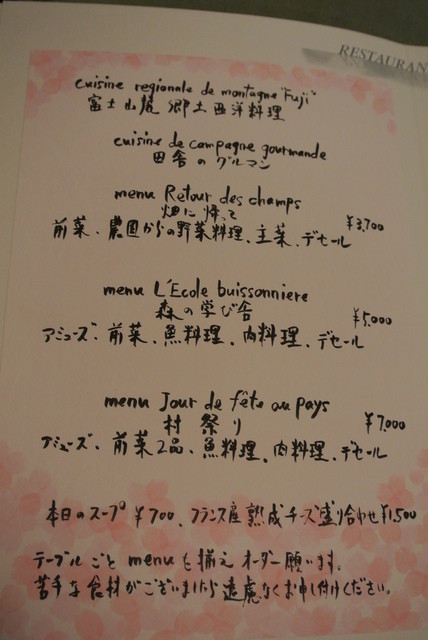 RESTAURAN
cuisine regionale de montagne "Fuji"
富士山麓 郷土西洋料理
cuisine de campagne gourmande
田舎のグルマン
menu Retour des champs
畑に帰って
¥3,700
前菜、農園からの野菜料理、主菜、デセール
menu L'Ecole buissonniere
森の学び舎
¥5,000
アミューズ、前菜、魚料理、肉料理、デセール
menu Jour de fête au pays
村祭り
¥7,000
アミューズ、前菜2品、魚料理、肉料理、デセール
本日のスープ ¥700、フランス産熟成チーズ盛り合わせ ¥1,500
テーブルごと menu を揃えオーダー願います。
苦手な食材がございましたら遠慮なくお申し付けください。